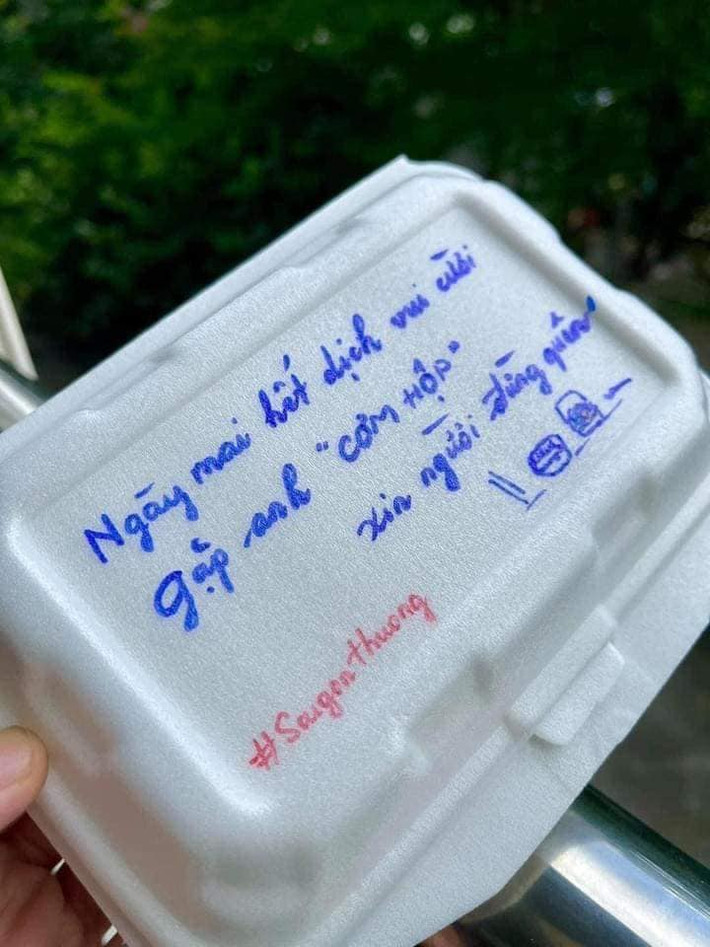 Ngày mai hết dịch vui cười
gặp anh "CƠM HỘP"
xin người đừng quên
#Saigonthuong